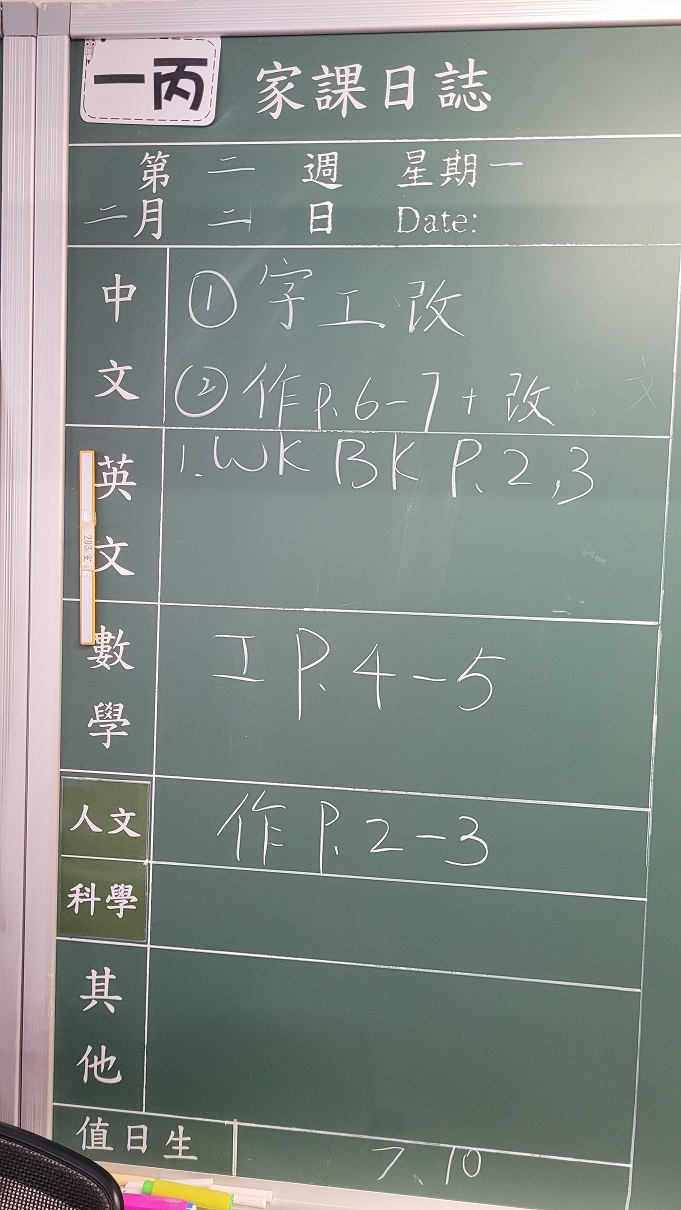 一丙 家課日誌
第 二 週 星期一
二月 二 日 Date:
中文
① 字工改
② 作P.6-7+改
英文
1. WK BK P.2,3
數學
工 P.4-5
人文
作 P.2-3
科學
其他
值日生
7、10